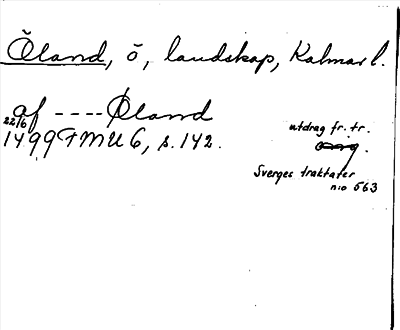 Öland, ö, landskap, Kalmar l.
af ---- Øland
22/6
1499 FMU 6, s. 142.
utdrag fr. tr.
orig.
Sverges traktater
n:o 563